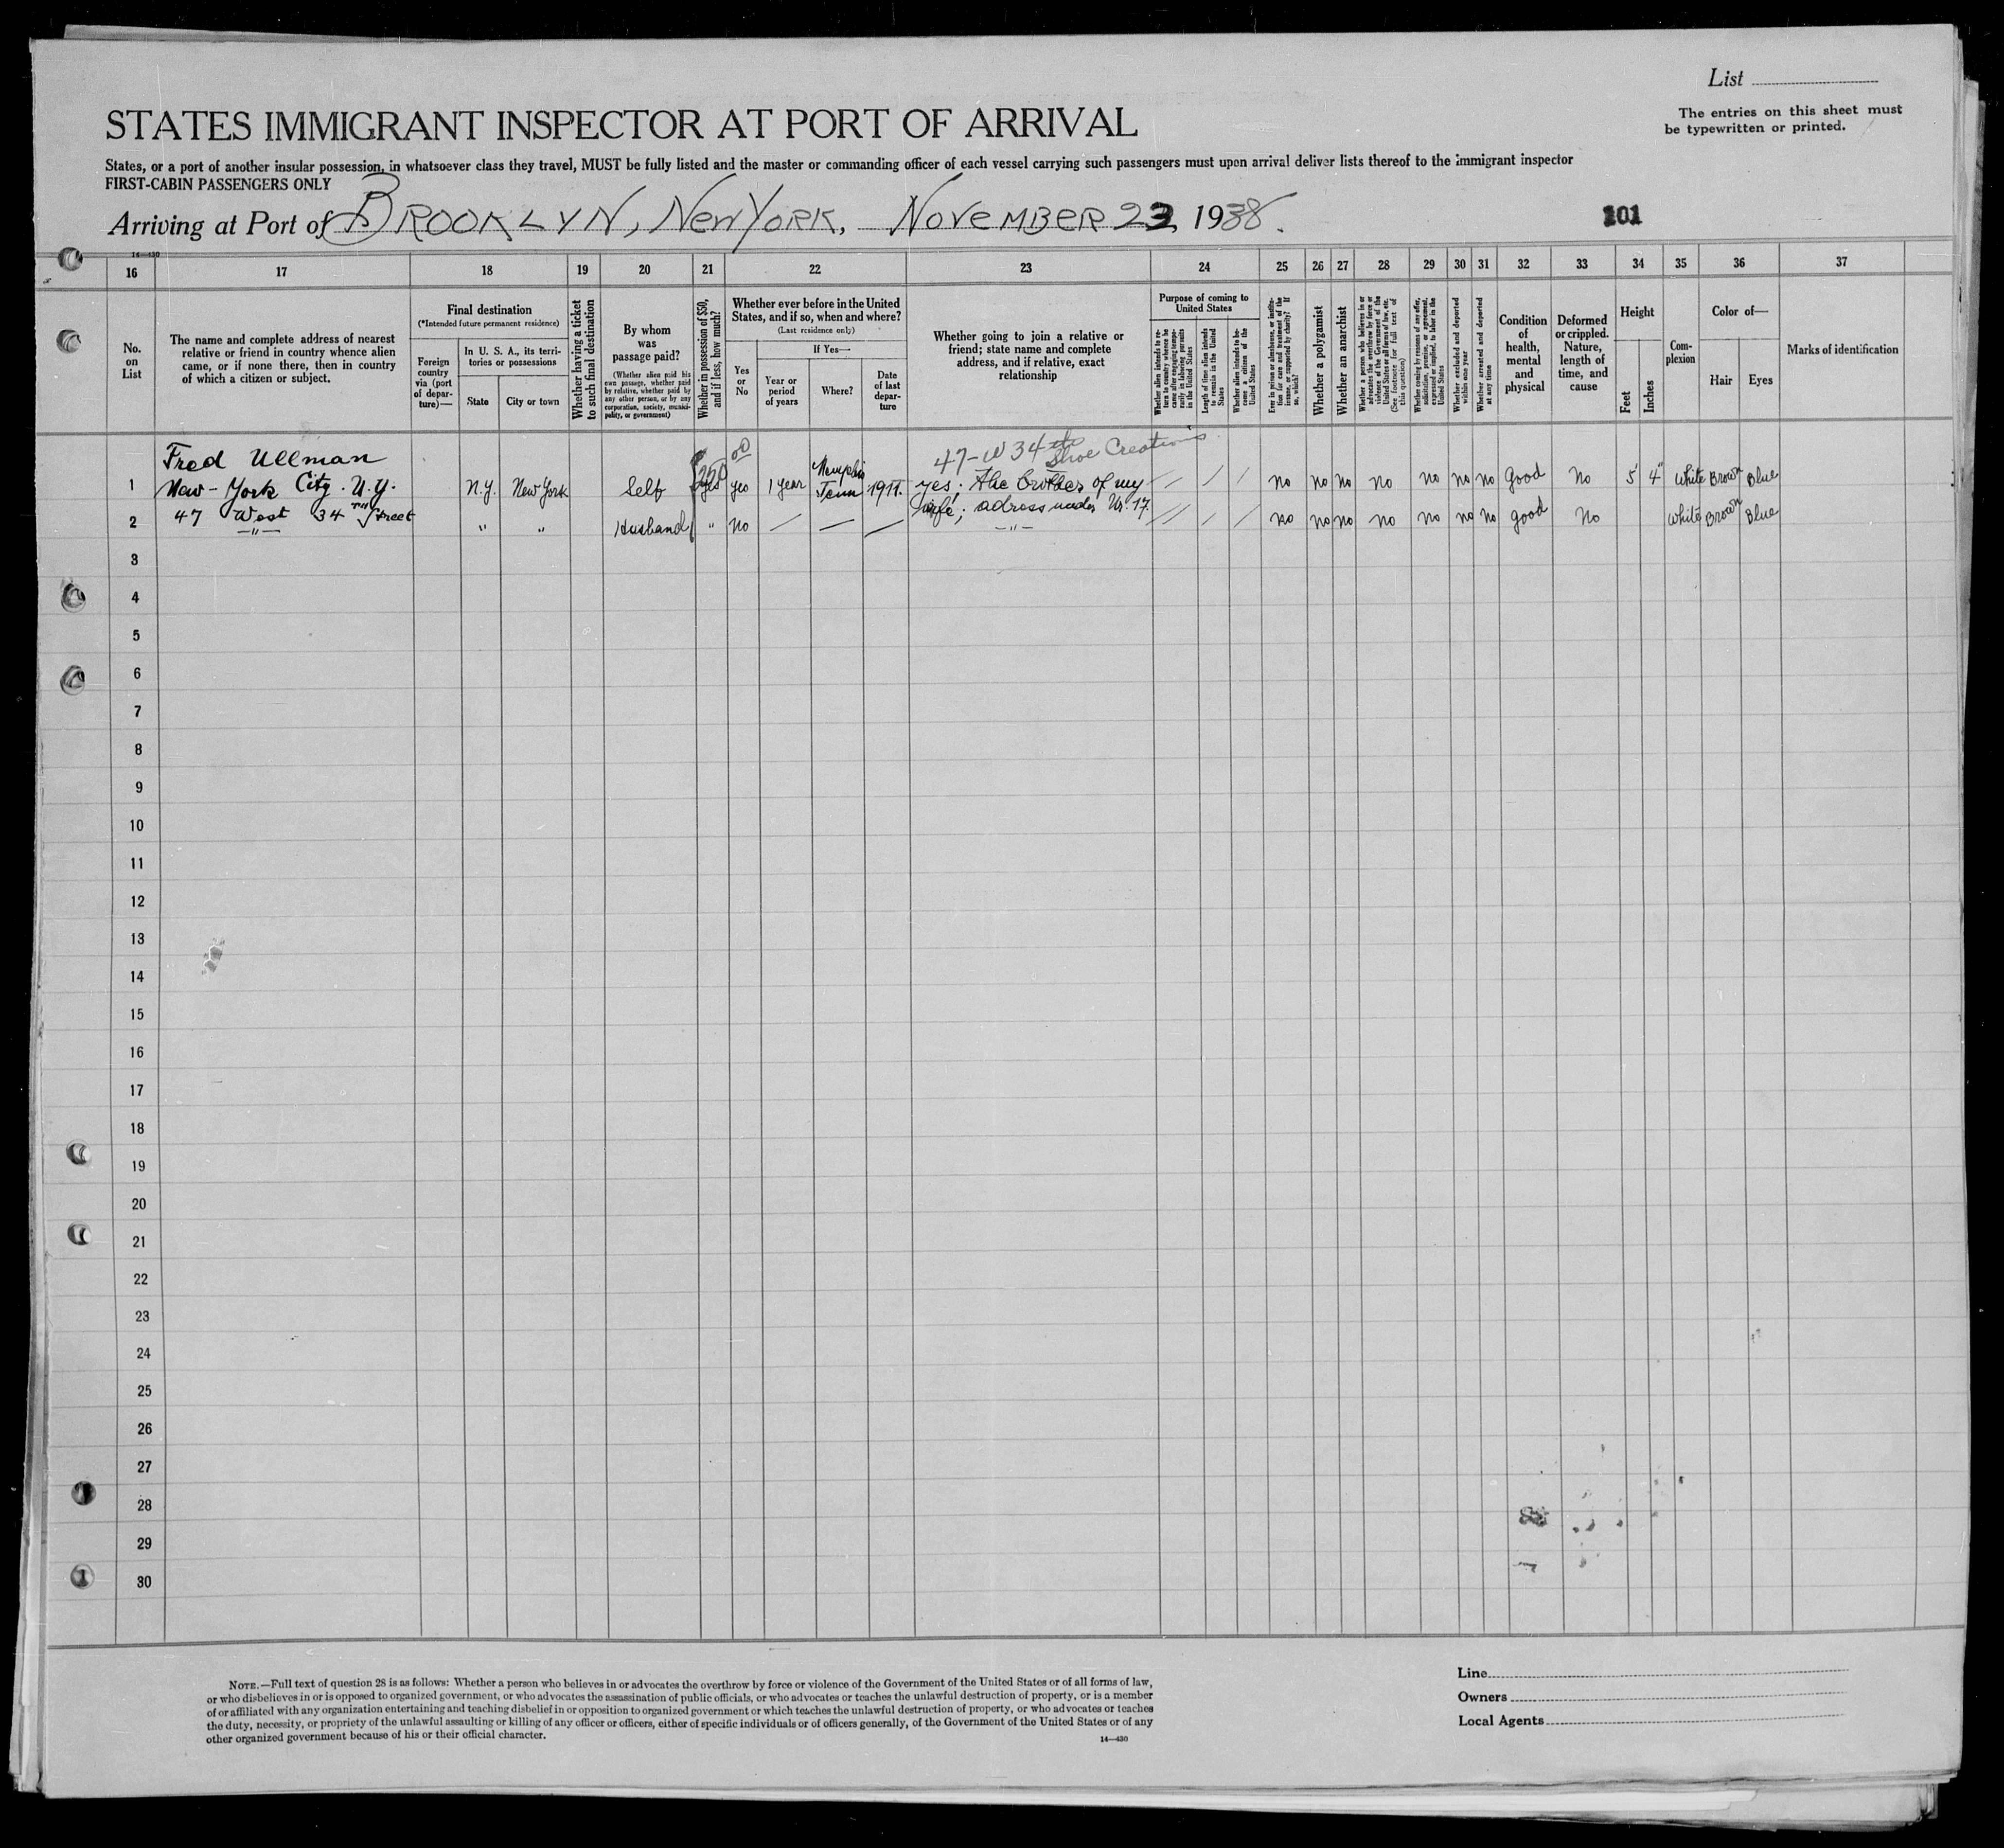 List
The entries on this sheet must
be typewritten or printed.
STATES IMMIGRANT INSPECTOR AT PORT OF ARRIVAL
States, or a port of another insular possession, in whatsoever class they travel, MUST be fully listed and the master or commanding officer of each vessel carrying such passengers must upon arrival deliver lists thereof to the immigrant inspector
FIRST-CABIN PASSENGERS ONLY
Arriving at Port of BROOKLYN, New YORK, NOVEMBER 23, 1938.
101
14—430
16 17 18 19 20 21 22 23 24 25 26 27 28 29 30 31 32 33 34 35 36 37
No.
on
List
The name and complete address of nearest
relative or friend in country whence alien
came, or if none there, then in country
of which a citizen or subject.
Final destination
(*Intended future permanent residence)
Foreign
country
via (port
of depar-
ture)—
In U. S. A., its terri-
tories or possessions
State
City or town
Whether having a ticket
to such final destination
By whom
was
passage paid?
(Whether alien paid his
own passage, whether paid
by relative, whether paid by
any other person, or by any
corporation, society, munici-
pality, or government)
Whether in possession of $50,
and if less, how much?
Whether ever before in the United
States, and if so, when and where?
(Last residence only)
Yes
or
No
If Yes—
Year or
period
of years
Where?
Date
of last
depar-
ture
Whether going to join a relative or
friend; state name and complete
address, and if relative, exact
relationship
Purpose of coming to
United States
Whether alien intends to re-
turn to country whence he
came after engaging tempo-
rarily in laboring pursuits
in the United States
Length of time alien intends
to remain in the United
States
Whether alien intends to be-
come a citizen of the
United States
Ever in prison or almshouse, or institu-
tion for care and treatment of the
insane, or supported by charity? If
so, which?
Whether a polygamist
Whether an anarchist
Whether a person who believes in or
advocates the overthrow by force or
violence of the Government of the
United States or all forms of law, etc.
(See footnote for full text of
this question)
Whether coming by reasons of any offer,
solicitation, promise, or agreement,
expressed or implied, to labor in the
United States
Whether excluded and deported
within one year
Whether arrested and deported
at any time
Condition
of
health,
mental
and
physical
Deformed
or crippled.
Nature,
length of
time, and
cause
Height
Feet
Inches
Com-
plexion
Color of—
Hair
Eyes
Marks of identification
Fred Ullman
47-W 34th
Shoe Creations
1 New-York City. N.Y. N.Y. New York Self yes yes 1 year Memphis Tenn 1911. yes; the brother of my no no no no no no no Good No 5' 4" White Brown Blue
47 West 34th Street
wife; adress under Nr. 17.
2 —"— " " Husband " No — — — —"— no no no no no no no good No White Brown Blue
3
4
5
6
7
8
9
10
11
12
13
14
15
16
17
18
19
20
21
22
23
24
25
26
27
28
29
30
NOTE.—Full text of question 28 is as follows: Whether a person who believes in or advocates the overthrow by force or violence of the Government of the United States or of all forms of law,
or who disbelieves in or is opposed to organized government, or who advocates the assassination of public officials, or who advocates or teaches the unlawful destruction of property, or is a member
of or affiliated with any organization entertaining and teaching disbelief in or opposition to organized government or which teaches the unlawful destruction of property, or who advocates or teaches
the duty, necessity, or propriety of the unlawful assaulting or killing of any officer or officers, either of specific individuals or of officers generally, of the Government of the United States or of any
other organized government because of his or their official character.
14—430
Line
Owners
Local Agents